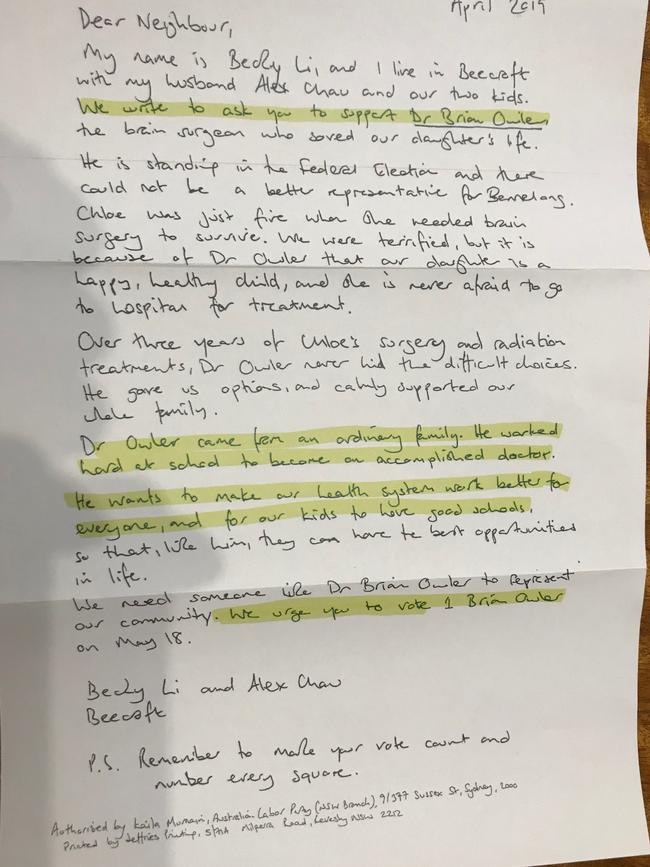 April 2019
Dear Neighbour,
My name is Becky Li, and I live in Beecroft
with my husband Alex Chau and our two kids.
We write to ask you to support Dr Brian Owler,
the brain surgeon who saved our daughter's life.
He is standing in the Federal Election and there
could not be a better representative for Bennelong.
Chloe was just five when she needed brain
surgery to survive. We were terrified, but it is
because of Dr Owler that our daughter is a
happy, healthy child, and she is never afraid to go
to hospital for treatment.
Over three years of Chloe's surgery and radiation
treatments, Dr Owler never hid the difficult choices.
He gave us options, and calmly supported our
whole family.
Dr Owler came from an ordinary family. He worked
hard at school to become an accomplished doctor.
He wants to make our health system work better for
everyone, and for our kids to have good schools,
so that, like him, they can have te best opportunities
in life.
We need someone like Dr Brian Owler to represent
our community. We urge you to vote 1 Brian Owler
on May 18.
Becky Li and Alex Chau
Beecroft
P.S. Remember to make your vote count and
number every square.
Authorised by Kaila Murnain, Australian Labor Party (NSW Branch), 9/377 Sussex St, Sydney, 2000
Printed by Jeffries Printing, 5/71A Milperra Road, Revesby NSW 2212